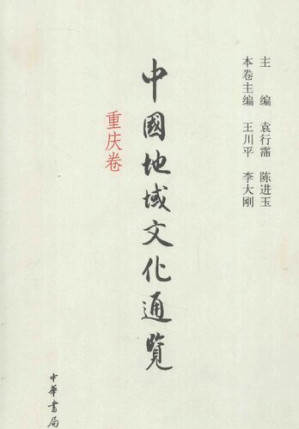 主 编 袁行霈 陈进玉
本卷主编 王川平 李大刚
中國地域文化通覽
重庆卷
中華書局